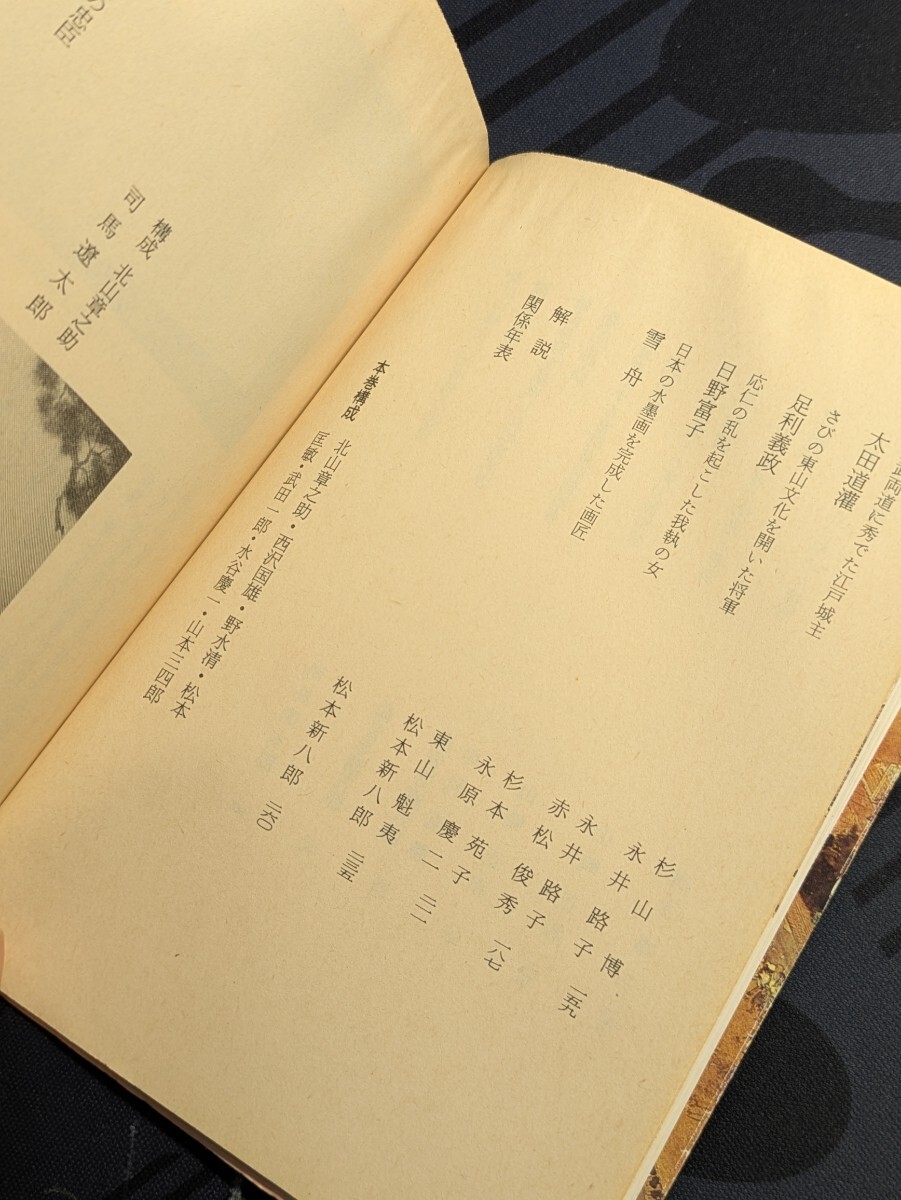 武両道に秀でた江戸城主
太田道灌 杉山博
永井路子 一五九
さびの東山文化を開いた将軍
足利義政 永井路子
赤松俊秀 一八七
応仁の乱を起こした我執の女
日野富子 杉本苑子
永原慶二 二一一
日本の水墨画を完成した画匠
雪舟 東山魁夷
松本新八郎 二三五
解説 松本新八郎 二六〇
関係年表
本巻構成 北山章之助・西沢国雄・野水清・松本
匡敏・武田一郎・水谷慶一・山本三四郎
の忠臣
構成 北山章之助
司馬遼太郎